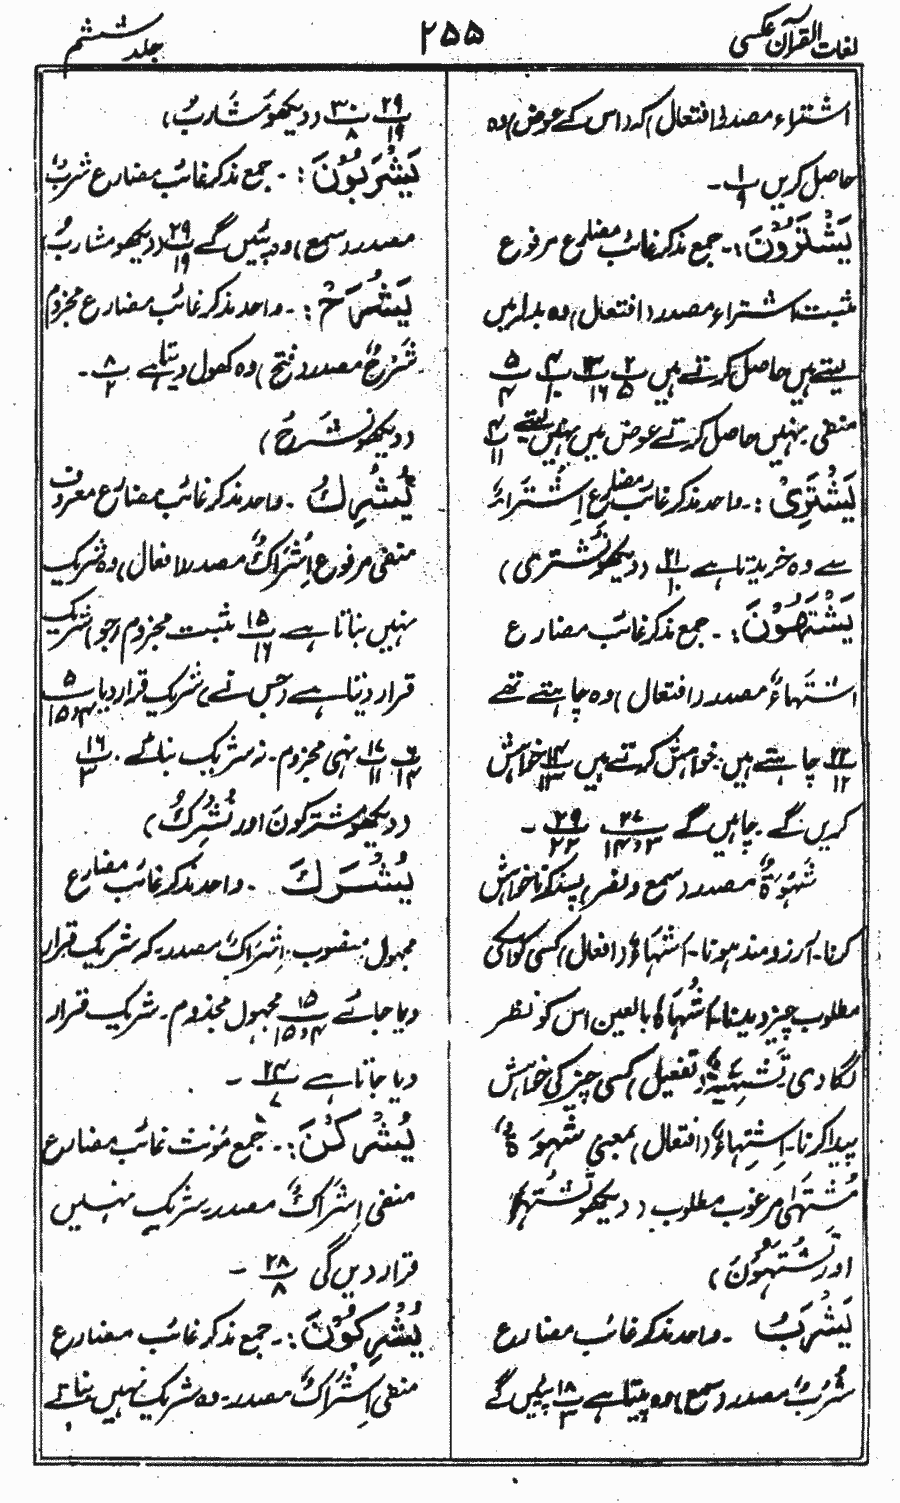 لغات القرآن عکسی
۲۵۵
جلد ششم
اشتراء مصدر افتعال کہ (اس کے عوض) وہ
حاصل کریں ۱/۹ -
یَشْتَرُوْنَ :- جمع مذکر غائب مضارع مرفوع
مثبت اشتراء مصدر (افتعال) وہ بدلہ میں
لیتے ہیں حاصل کرتے ہیں ۲/۵ ۳/۱۶ ۴/۱۰ ۵/۴
منفی نہیں حاصل کرتے عوض میں نہیں لیتے ۴/۱۱
یَشْتَرِیْ :- واحد مذکر غائب مضارع اِشْتِرَاءٌ
سے وہ خریدتا ہے ۲۱/۱۰ (دیکھو نَشْتَرِی)
یَشْتَهُوْنَ :- جمع مذکر غائب مضارع
اشتہاءٌ مصدر (افتعال) وہ چاہتے تھے
۲۲/۱۲ چاہتے ہیں خواہش کرتے ہیں ۱۴/۱۳ خواہش
کریں گے - چاہیں گے ۲۷/۱۴،۳ ۲۹/۲۲ -
شَهْوَةٌ مصدر (سمع و نصر) پسند کرنا خواہش
کرنا - آرزو مند ہونا - اِشْتِهَاءٌ (افعال) کسی کو اس کی
مطلوب چیز دیدینا - اِشْهَاءٌ بالعین اس کو نظر
لگا دی تَشْهِیَةٌ (تفعیل) کسی چیز کی خواہش
پیدا کرنا - اِشْتِهَاءٌ (افتعال) بمعنی شَهْوَةٌ
مُشْتَهٰی مرغوب مطلوب (دیکھو تَشْتَهِی
اور تَشْتَهُوْنَ)
یَشْرَبُ - واحد مذکر غائب مضارع
شُرْبٌ مصدر (سمع) وہ پیتا ہے ۱۸/۳ پئیں گے
۲۹/۱۹ ۳۰/۸ (دیکھو مَشَارِبُ)
یَشْرَبُوْنَ :- جمع مذکر غائب مضارع شُرْبٌ
مصدر (سمع) وہ پئیں گے ۲۹/۱۹ (دیکھو مشاربُ)
یَشْرَحْ :- واحد مذکر غائب مضارع مجزوم
شَرْحٌ مصدر (فتح) وہ کھول دیتا ہے ۸/۲ -
(دیکھو نَشْرَحْ)
یُشْرِكُ - واحد مذکر غائب مضارع معروف
منفی مرفوع اِشْرَاكٌ مصدر (افعال) وہ شریک
نہیں بناتا ہے ۱۵/۱۶ مثبت مجزوم (جو) شریک
قرار دیتا ہے (جس نے) شریک قرار دیا ۵/۱۵،۴
۶/۱۴ ۱۷/۱۱ نہی مجزوم - نہ شریک بنائے - ۱۶/۳
(دیکھو مشترکون اور نُشْرِكُ)
یُشْرَكْ - واحد مذکر غائب مضارع
مجہول منصوب - اِشْرَاكٌ مصدر - کہ شریک قرار
دیا جائے ۱۵/۱۵،۴ مجہول مجذوم - شریک قرار
دیا جاتا ہے ۲۴/۷ -
یُشْرِكْنَ :- جمع مؤنث غائب مضارع
منفی اِشْرَاكٌ مصدر - شریک نہیں
قرار دیں گی ۲۸/۸ -
یُشْرِكُوْنَ :- جمع مذکر غائب مضارع
منفی اِشْرَاكٌ مصدر - وہ شریک نہیں بناتے